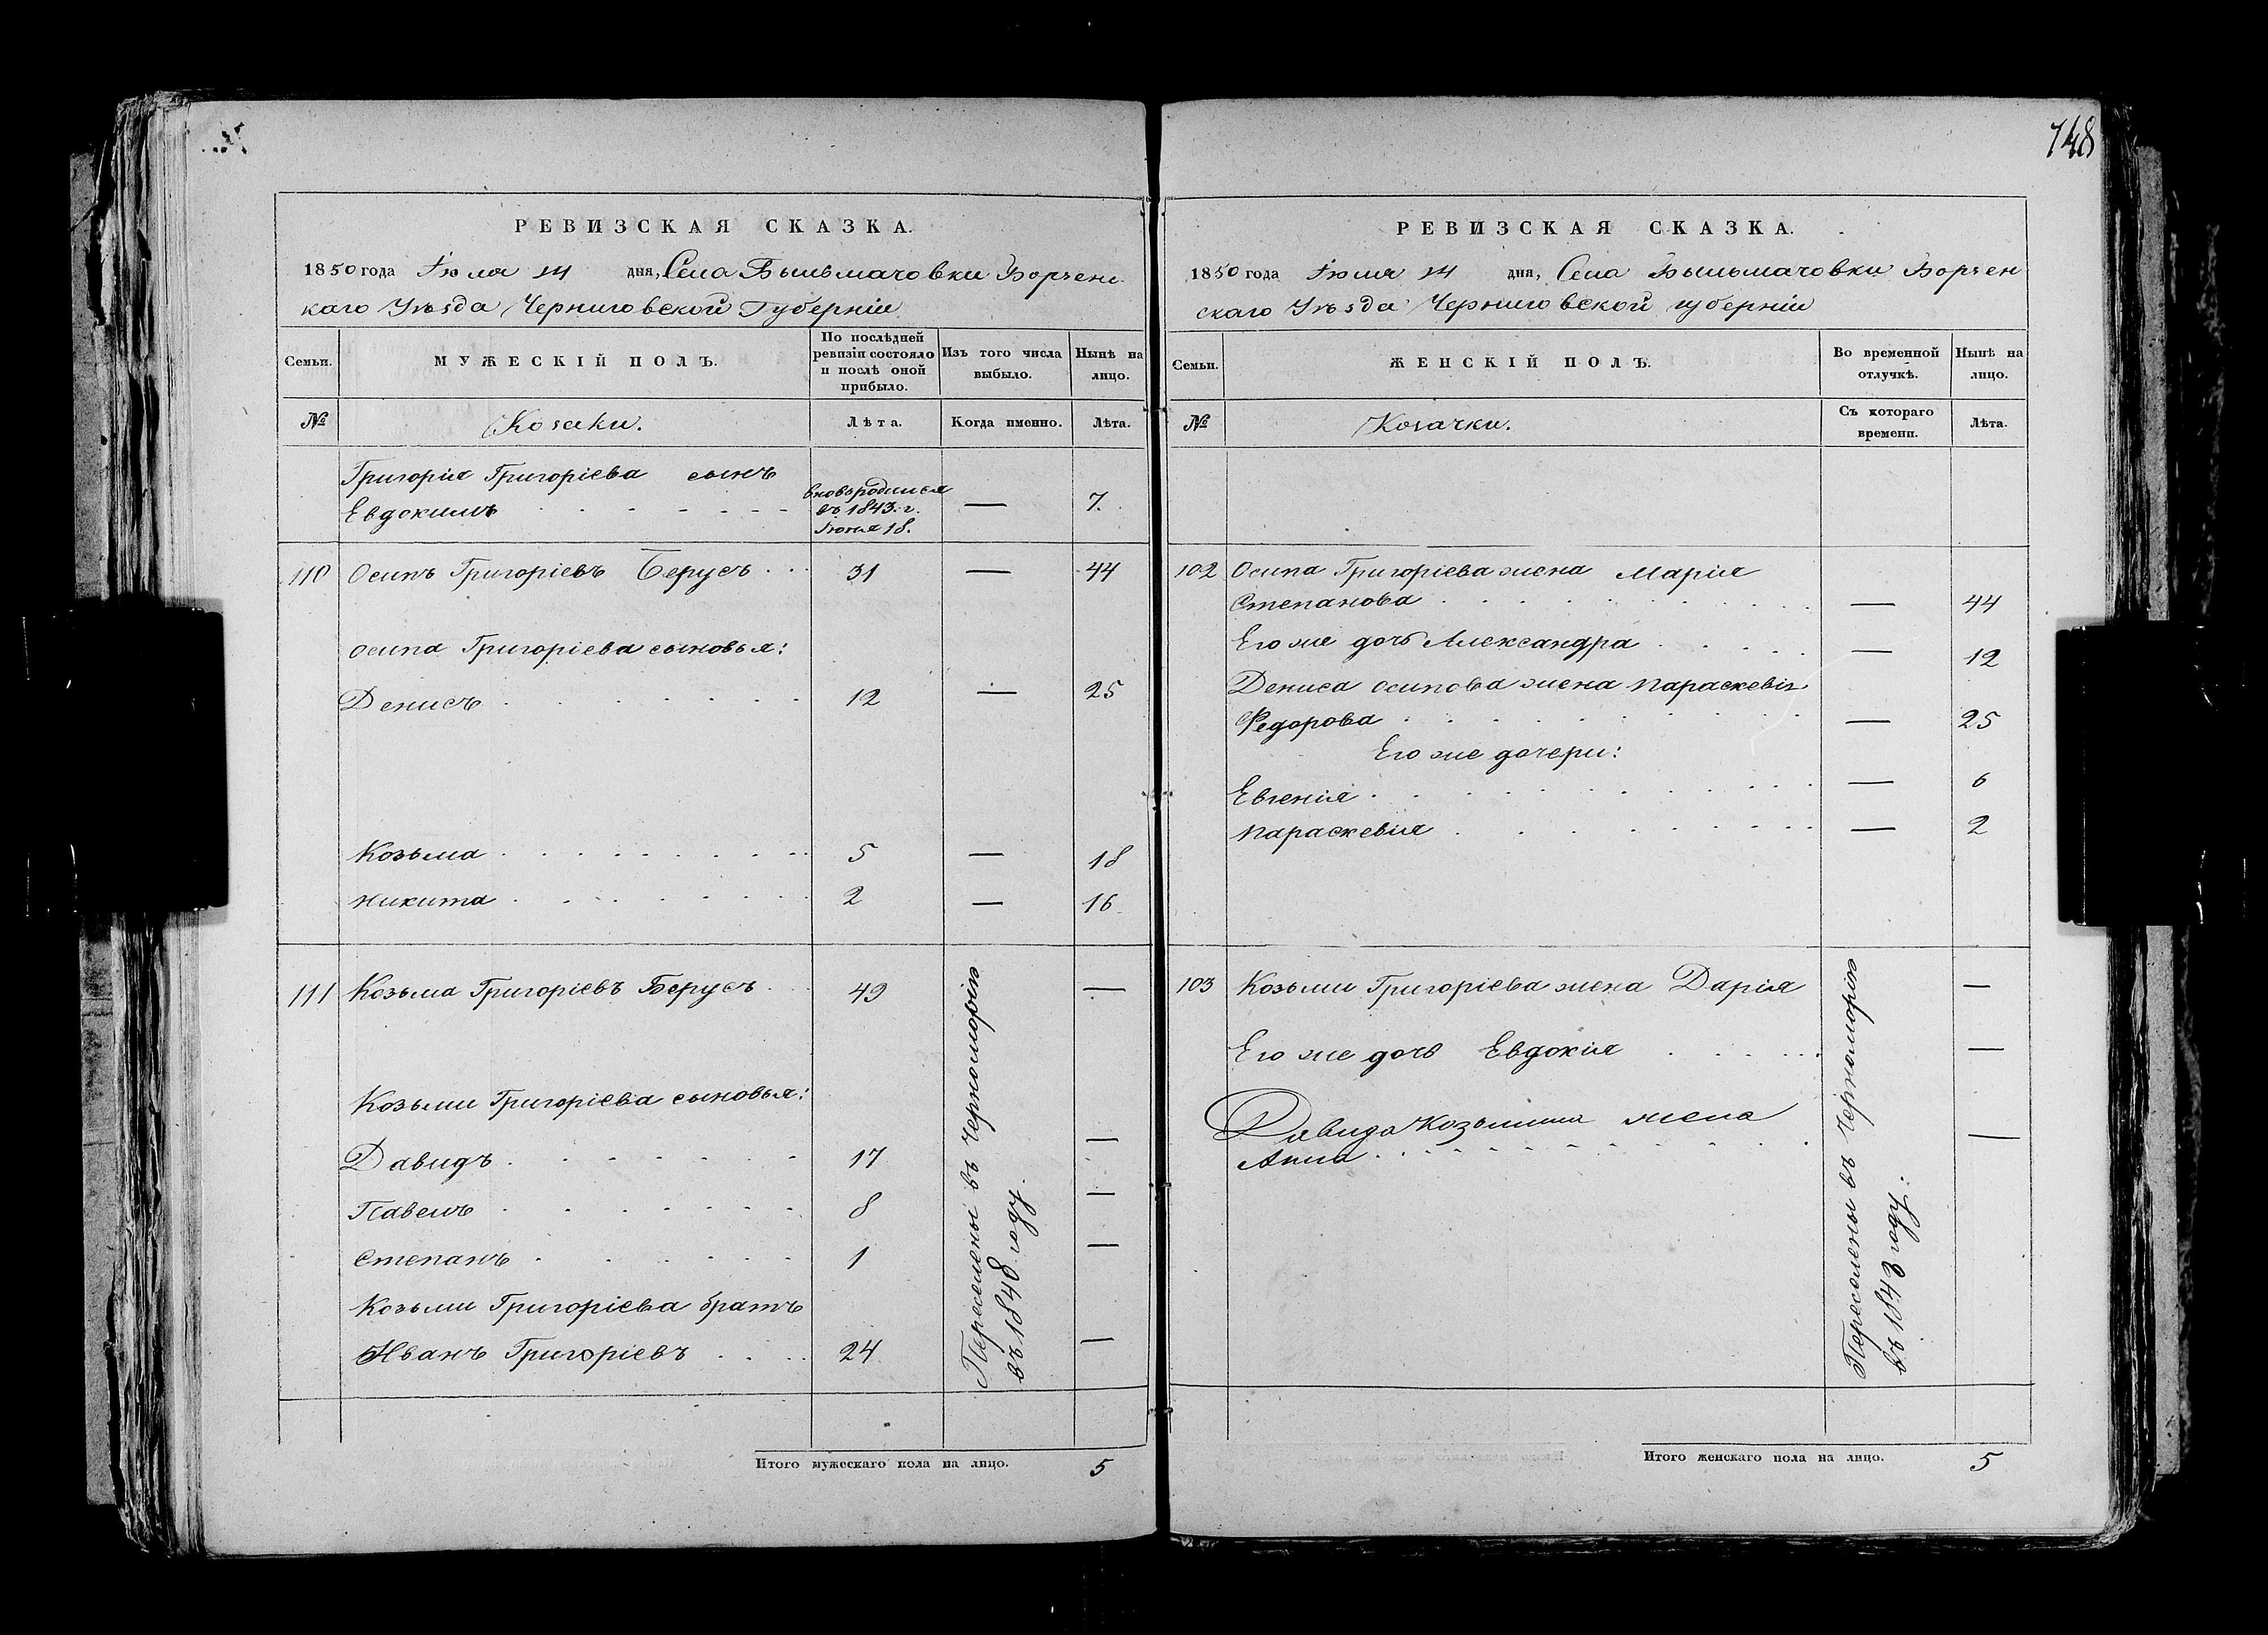 748
РЕВИЗСКАЯ СКАЗКА.
1850 года Іюля 14 дня, Села Вышьмачовки Борзенс
каго Уѣзда Черниговской Губерніи
Семьи. МУЖЕСКІЙ ПОЛЪ. По послѣдней ревизіи состояло и послѣ оной прибыло. Изъ того числа выбыло. Нынѣ на лицо.
№ Козаки. Лѣта. Когда именно. Лѣта.
Григорія Григоріева сынъ
Евдокимъ вновьродился въ 1843. г. Іюня 18. — 7.
110 Осипъ Григоріевъ Берусъ 31 — 44
Осипа Григоріева сыновья:
Денисъ 12 — 25
Козьма 5 — 18
Никита 2 — 16
111 Козьма Григоріевъ Берусъ 49 —
Козьмы Григоріева сыновья:
Давидъ 17 —
Павелъ 8 —
Степанъ 1 —
Козьмы Григоріева братъ
Иванъ Григоріевъ 24 —
Переселены въ Черноморію
въ 1848 году.
Итого мужескаго пола на лицо. 5
РЕВИЗСКАЯ СКАЗКА.
1850 года Іюля 14 дня, Села Вышьмачовки Борзен
скаго Уѣзда Черниговской губерніи
Семьи. ЖЕНСКІЙ ПОЛЪ. Во временной отлучкѣ. Нынѣ на лицо.
№ Козачки. Съ котораго времени. Лѣта.
102 Осипа Григоріева жена Марія
Степанова — 44
Его же дочь Александра — 12
Дениса Осипова жена Параскевія
Федорова — 25
Его же дочери:
Евгенія — 6
Параскевія — 2
103 Козьмы Григоріева жена Дарія —
Его же дочь Евдокія —
Давида Козьмина жена
Анна —
Переселены въ Черноморію
въ 1848 году.
Итого женскаго пола на лицо. 5